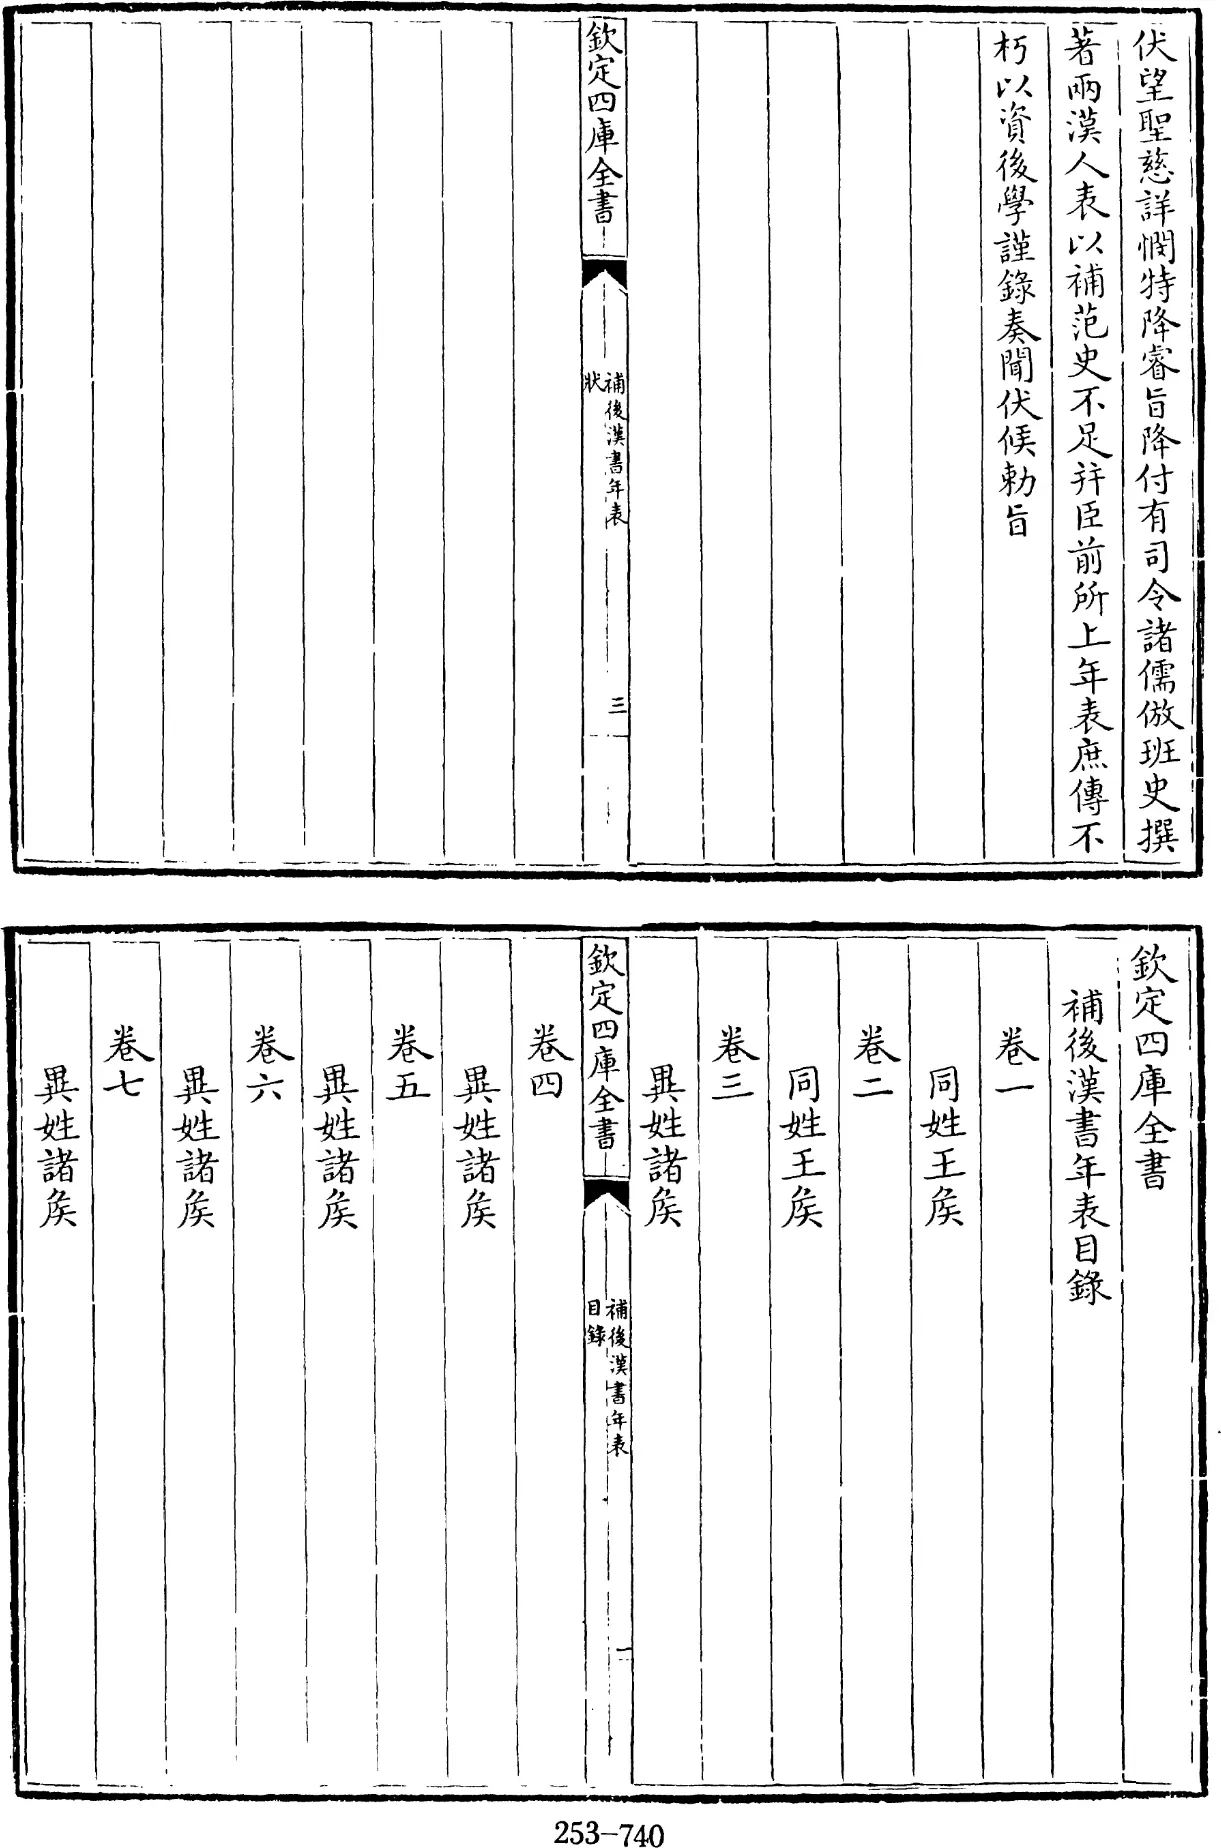 伏望聖慈詳憫特降睿旨降付有司令諸儒倣班史撰
著兩漢人表以補范史不足并臣前所上年表庶傳不
朽以資後學謹錄奏聞伏候勅旨
欽定四庫全書
補後漢書年表
狀
三
欽定四庫全書
補後漢書年表目錄
卷一
同姓王侯
卷二
同姓王侯
卷三
異姓諸侯
欽定四庫全書
補後漢書年表
目錄
一
卷四
異姓諸侯
卷五
異姓諸侯
卷六
異姓諸侯
卷七
異姓諸侯
253-740